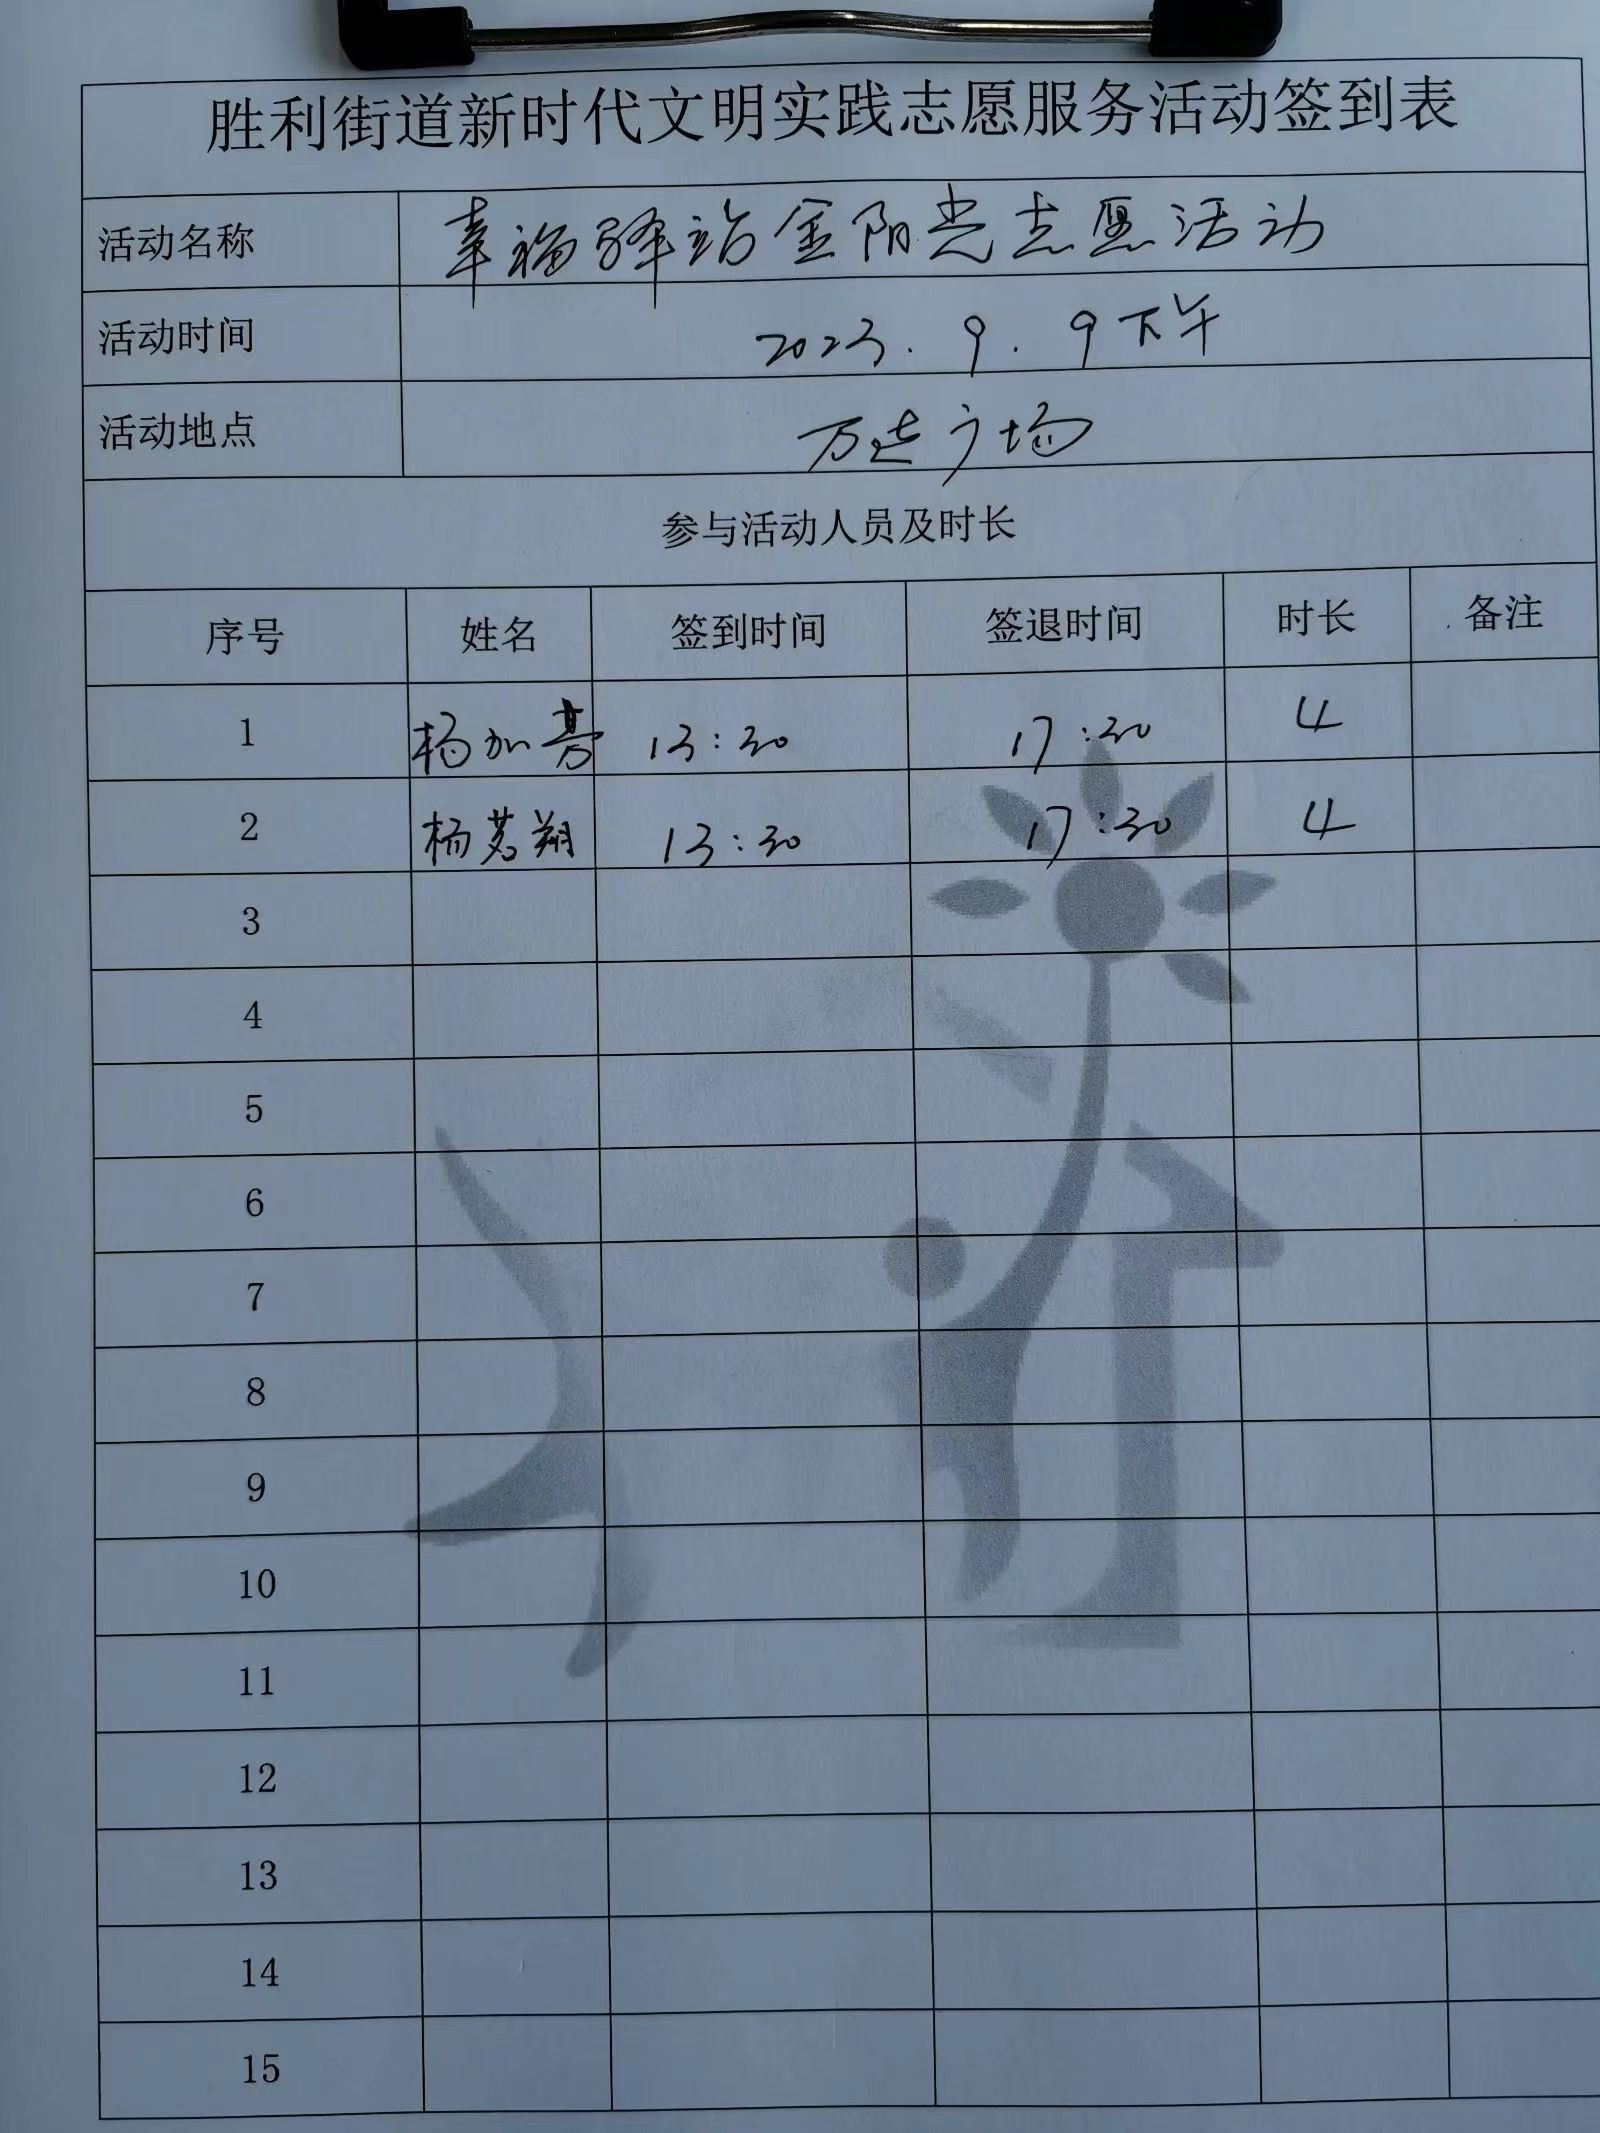 胜利街道新时代文明实践志愿服务活动签到表
活动名称 幸福驿站金阳光志愿活动
活动时间 2023.9.9下午
活动地点 万达广场
参与活动人员及时长
序号 姓名 签到时间 签退时间 时长 备注
1 杨加 13:30 17:30 4
2 杨茗翔 13:30 17:30 4
3
4
5
6
7
8
9
10
11
12
13
14
15